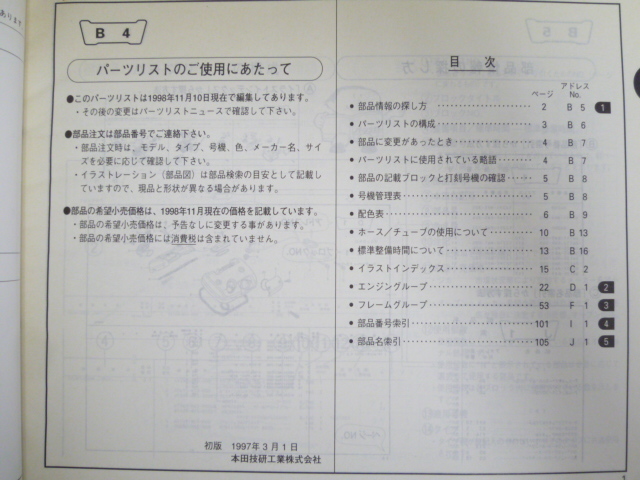 B 4
パーツリストのご使用にあたって
●このパーツリストは1998年11月10日現在で編集してあります。
・その後の変更はパーツリストニュースで確認して下さい。
●部品注文は部品番号でご連絡下さい。
・部品注文時は、モデル、タイプ、号機、色、メーカー名、サイ
ズを必要に応じて確認して下さい。
・イラストレーション（部品図）は部品検索の目安として記載し
ていますので、現品と形状が異なる場合があります。
●部品の希望小売価格は、1998年11月現在の価格を記載しています。
・部品の希望小売価格は、予告なしに変更する事があります。
・部品の希望小売価格には消費税は含まれていません。
初版 1997年3月1日
本田技研工業株式会社
目 次
ページ アドレス No.
● 部品情報の探し方 2 B 5 1
● パーツリストの構成 3 B 6
● 部品に変更があったとき 4 B 7
● パーツリストに使用されている略語 4 B 7
● 部品の記載ブロックと打刻号機の確認 5 B 8
● 号機管理表 5 B 8
● 配色表 6 B 9
● ホース／チューブの使用について 10 B 13
● 標準整備時間について 13 B 16
● イラストインデックス 15 C 2
● エンジングループ 22 D 1 2
● フレームグループ 53 F 1 3
● 部品番号索引 101 I 1 4
● 部品名索引 105 J 1 5